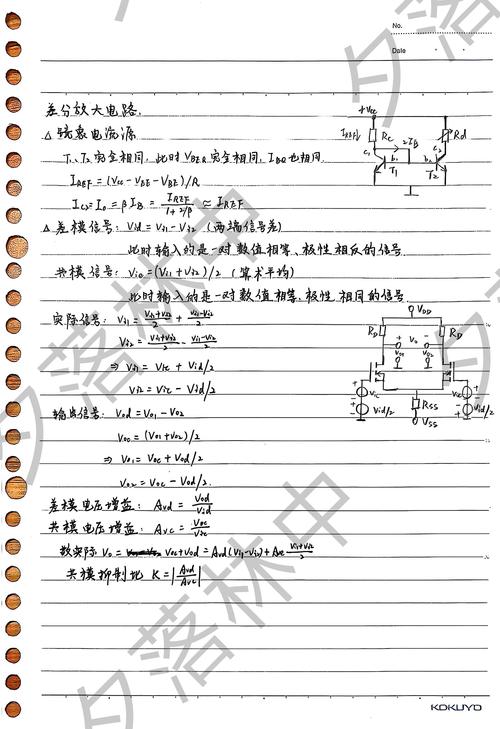 No.
Date
差分放大电路.
△ 镜象电流源
T₁、T₂ 完全相同，此时 VBER 完全相同，IBQ 也相同.
IREF = (Vcc - VEE - VBE)/R
Ic2 = Io = βIB = IREF/(1+2/β) ≈ IREF
△ 差模信号: Vid = Vi1 - Vi2 (两端信号差)
此时输入的是一对数值相等、极性相反的信号
共模信号: Vic = (Vi1 + Vi2)/2 (算术平均)
此时输入的是一对数值相等、极性相同的信号
实际信号: Vi1 = (Vi1+Vi2)/2 + (Vi1-Vi2)/2
Vi2 = (Vi1+Vi2)/2 - (Vi1-Vi2)/2
⇒ Vi1 = Vic + Vid/2
Vi2 = Vic - Vid/2
输出信号: Vod = Vo1 - Vo2
Voc = (Vo1 + Vo2)/2
⇒ Vo1 = Voc + Vod/2
Vo2 = Voc - Vod/2.
差模电压增益: Avd = Vod/Vid
共模电压增益: Avc = Voc/Vic
故实际 Vo = Voc+Vod = Avd(Vi1-Vi2) + Avc (Vi1+Vi2)/2
共模抑制比 K = |Avd/Avc|
+Vcc
IREF↓ Rc 2IB Rd
C1 C2
b1 b2
T1 T2
VDD
RD Vo RD
Vo1 Vo2
Vic Vic
Vid/2 RSS Vid/2
VSS
KOKUYO
夕落林中
夕落林中
夕落林中